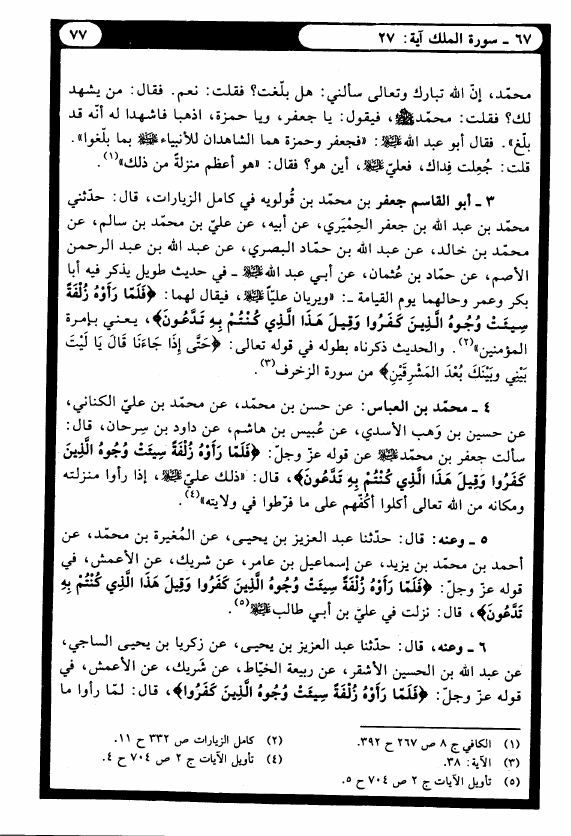 ٦٧ ـ سورة الملك آية: ٢٧
٧٧
محمّد، إنّ الله تبارك وتعالى سألني: هل بلّغت؟ فقلت: نعم. فقال: من يشهد
لك؟ فقلت: محمّد ﷺ، فيقول: يا جعفر، ويا حمزة، اذهبا فاشهدا له أنّه قد
بلّغ». فقال أبو عبد الله عليه السلام: «فجعفر وحمزة هما الشاهدان للأنبياء عليهم السلام بما بلّغوا».
قلت: جُعِلت فِداك، فعليّ عليه السلام، أين هو؟ فقال: «هو أعظم منزلةً من ذلك»(١).
٣ ـ أبو القاسم جعفر بن محمّد بن قُولويه في كامل الزيارات، قال: حدّثني
محمّد بن عبد الله بن جعفر الحِمْيَري، عن أبيه، عن عليّ بن محمّد بن سالم، عن
محمّد بن خالد، عن عبد الله بن حمّاد البصري، عن عبد الله بن عبد الرحمن
الأصم، عن حمّاد بن عُثمان، عن أبي عبد الله عليه السلام ـ في حديث طويل يذكر فيه أبا
بكر وعمر وحالهما يوم القيامة ـ: «ويريان عليّاً عليه السلام، فيقال لهما: ﴿فَلَمَّا رَأَوْهُ زُلْفَةً
سِيـَٔتْ وُجُوهُ الَّذِينَ كَفَرُوا وَقِيلَ هَذَا الَّذِي كُنْتُمْ بِهِ تَدَّعُونَ﴾، يعني بإمرة
المؤمنين»(٢). والحديث ذكرناه بطوله في قوله تعالى: ﴿حَتَّى إِذَا جَاءَنَا قَالَ يَا لَيْتَ
بَيْنِي وَبَيْنَكَ بُعْدَ المَشْرِقَيْنِ﴾ من سورة الزخرف(٣).
٤ ـ محمّد بن العباس: عن حسن بن محمّد، عن محمّد بن عليّ الكناني،
عن حسين بن وَهب الأسدي، عن عُبيس بن هاشم، عن داود بن سِرحان، قال:
سألت جعفر بن محمّد عليه السلام عن قوله عزّ وجلّ: ﴿فَلَمَّا رَأَوْهُ زُلْفَةً سِيـَٔتْ وُجُوهُ الَّذِينَ
كَفَرُوا وَقِيلَ هَذَا الَّذِي كُنْتُمْ بِهِ تَدَّعُونَ﴾، قال: «ذلك عليّ عليه السلام، إذا رأوا منزلته
ومكانه من الله تعالى أكلوا أكُفّهم على ما فرّطوا في ولايته»(٤).
٥ ـ وعنه: قال: حدّثنا عبد العزيز بن يحيى، عن المُغيرة بن محمّد، عن
أحمد بن محمّد بن يزيد، عن إسماعيل بن عامر، عن شريك، عن الأعمش، في
قوله عزّ وجلّ: ﴿فَلَمَّا رَأَوْهُ زُلْفَةً سِيـَٔتْ وُجُوهُ الَّذِينَ كَفَرُوا وَقِيلَ هَذَا الَّذِي كُنْتُمْ بِهِ
تَدَّعُونَ﴾، قال: نزلت في عليّ بن أبي طالب عليه السلام(٥).
٦ ـ وعنه، قال: حدّثنا عبد العزيز بن يحيى، عن زكريا بن يحيى الساجي،
عن عبد الله بن الحسين الأشقر، عن ربيعة الخيّاط، عن شَريك، عن الأعمش، في
قوله عزّ وجلّ: ﴿فَلَمَّا رَأَوْهُ زُلْفَةً سِيـَٔتْ وُجُوهُ الَّذِينَ كَفَرُوا﴾، قال: لمّا رأوا ما
(١) الكافي ج ٨ ص ٢٦٧ ح ٣٩٢. (٢) كامل الزيارات ص ٣٣٢ ح ١١.
(٣) الآية: ٣٨. (٤) تأويل الآيات ج ٢ ص ٧٠٤ ح ٤.
(٥) تأويل الآيات ج ٢ ص ٧٠٤ ح ٥.